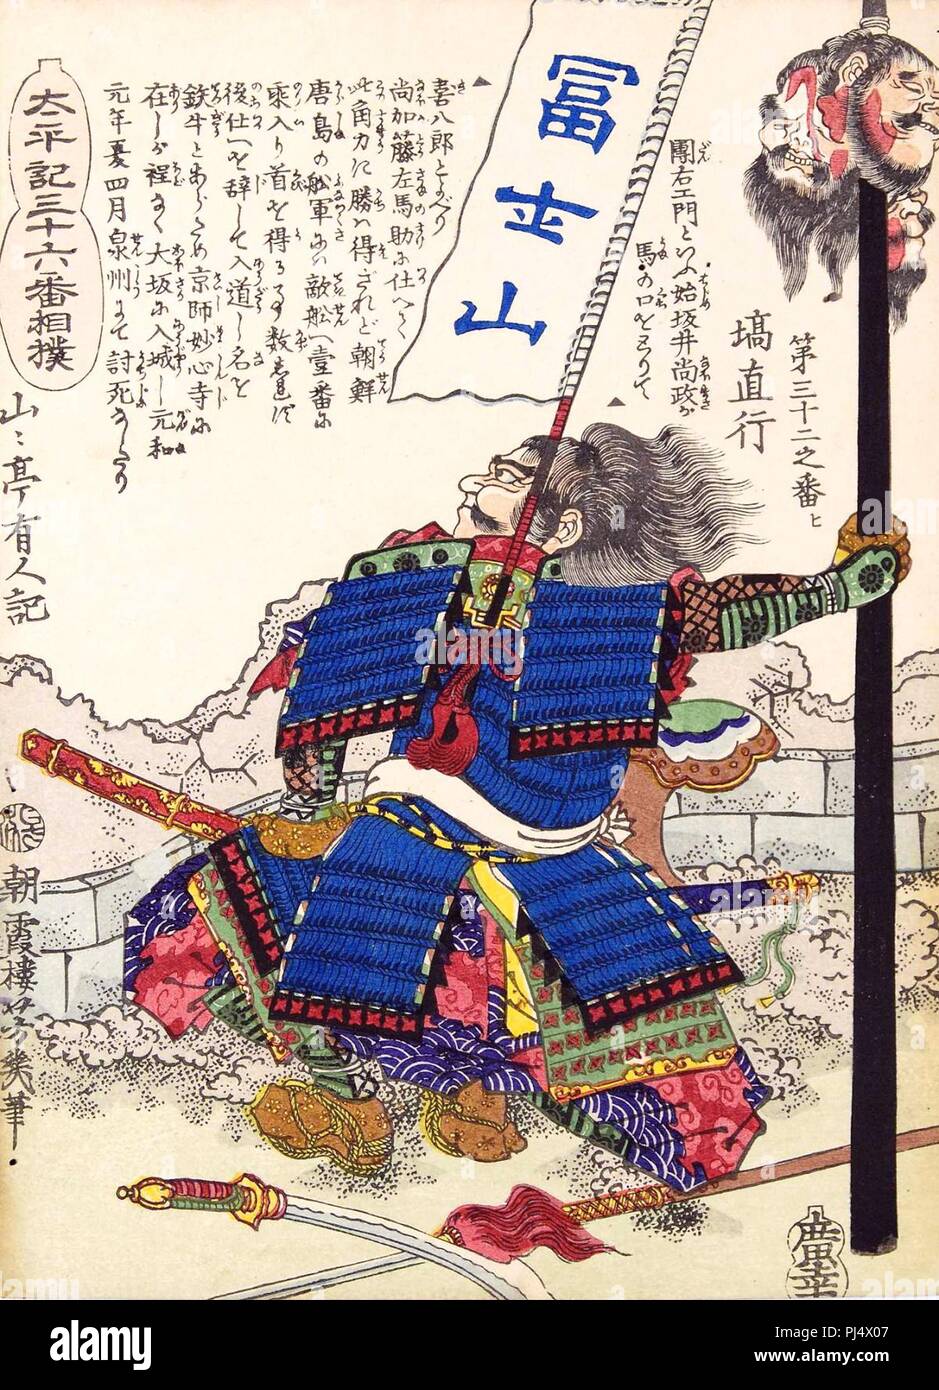 太平記三十六番相撲
冨士山
第三十二之番ヒ
塙直行
團右エ門といふ始坂井尚政が
馬の口をとりて
喜八郎とよべり
尚加藤左馬助に仕へて
此角力に勝を得されど朝鮮
唐島の舩軍に敵舩へ壹番に
乗入り首を得る事数
後仕へを辞して入道し名を
鉄牛とあらため京師妙心寺に
在しが程なく大坂に入城し元和
元年夏四月泉州にて討死なしたり
山々亭有人記
朝霞樓芳幾筆
廣幸
alamy
alamy
Image ID: PJ4X07
www.alamy.com